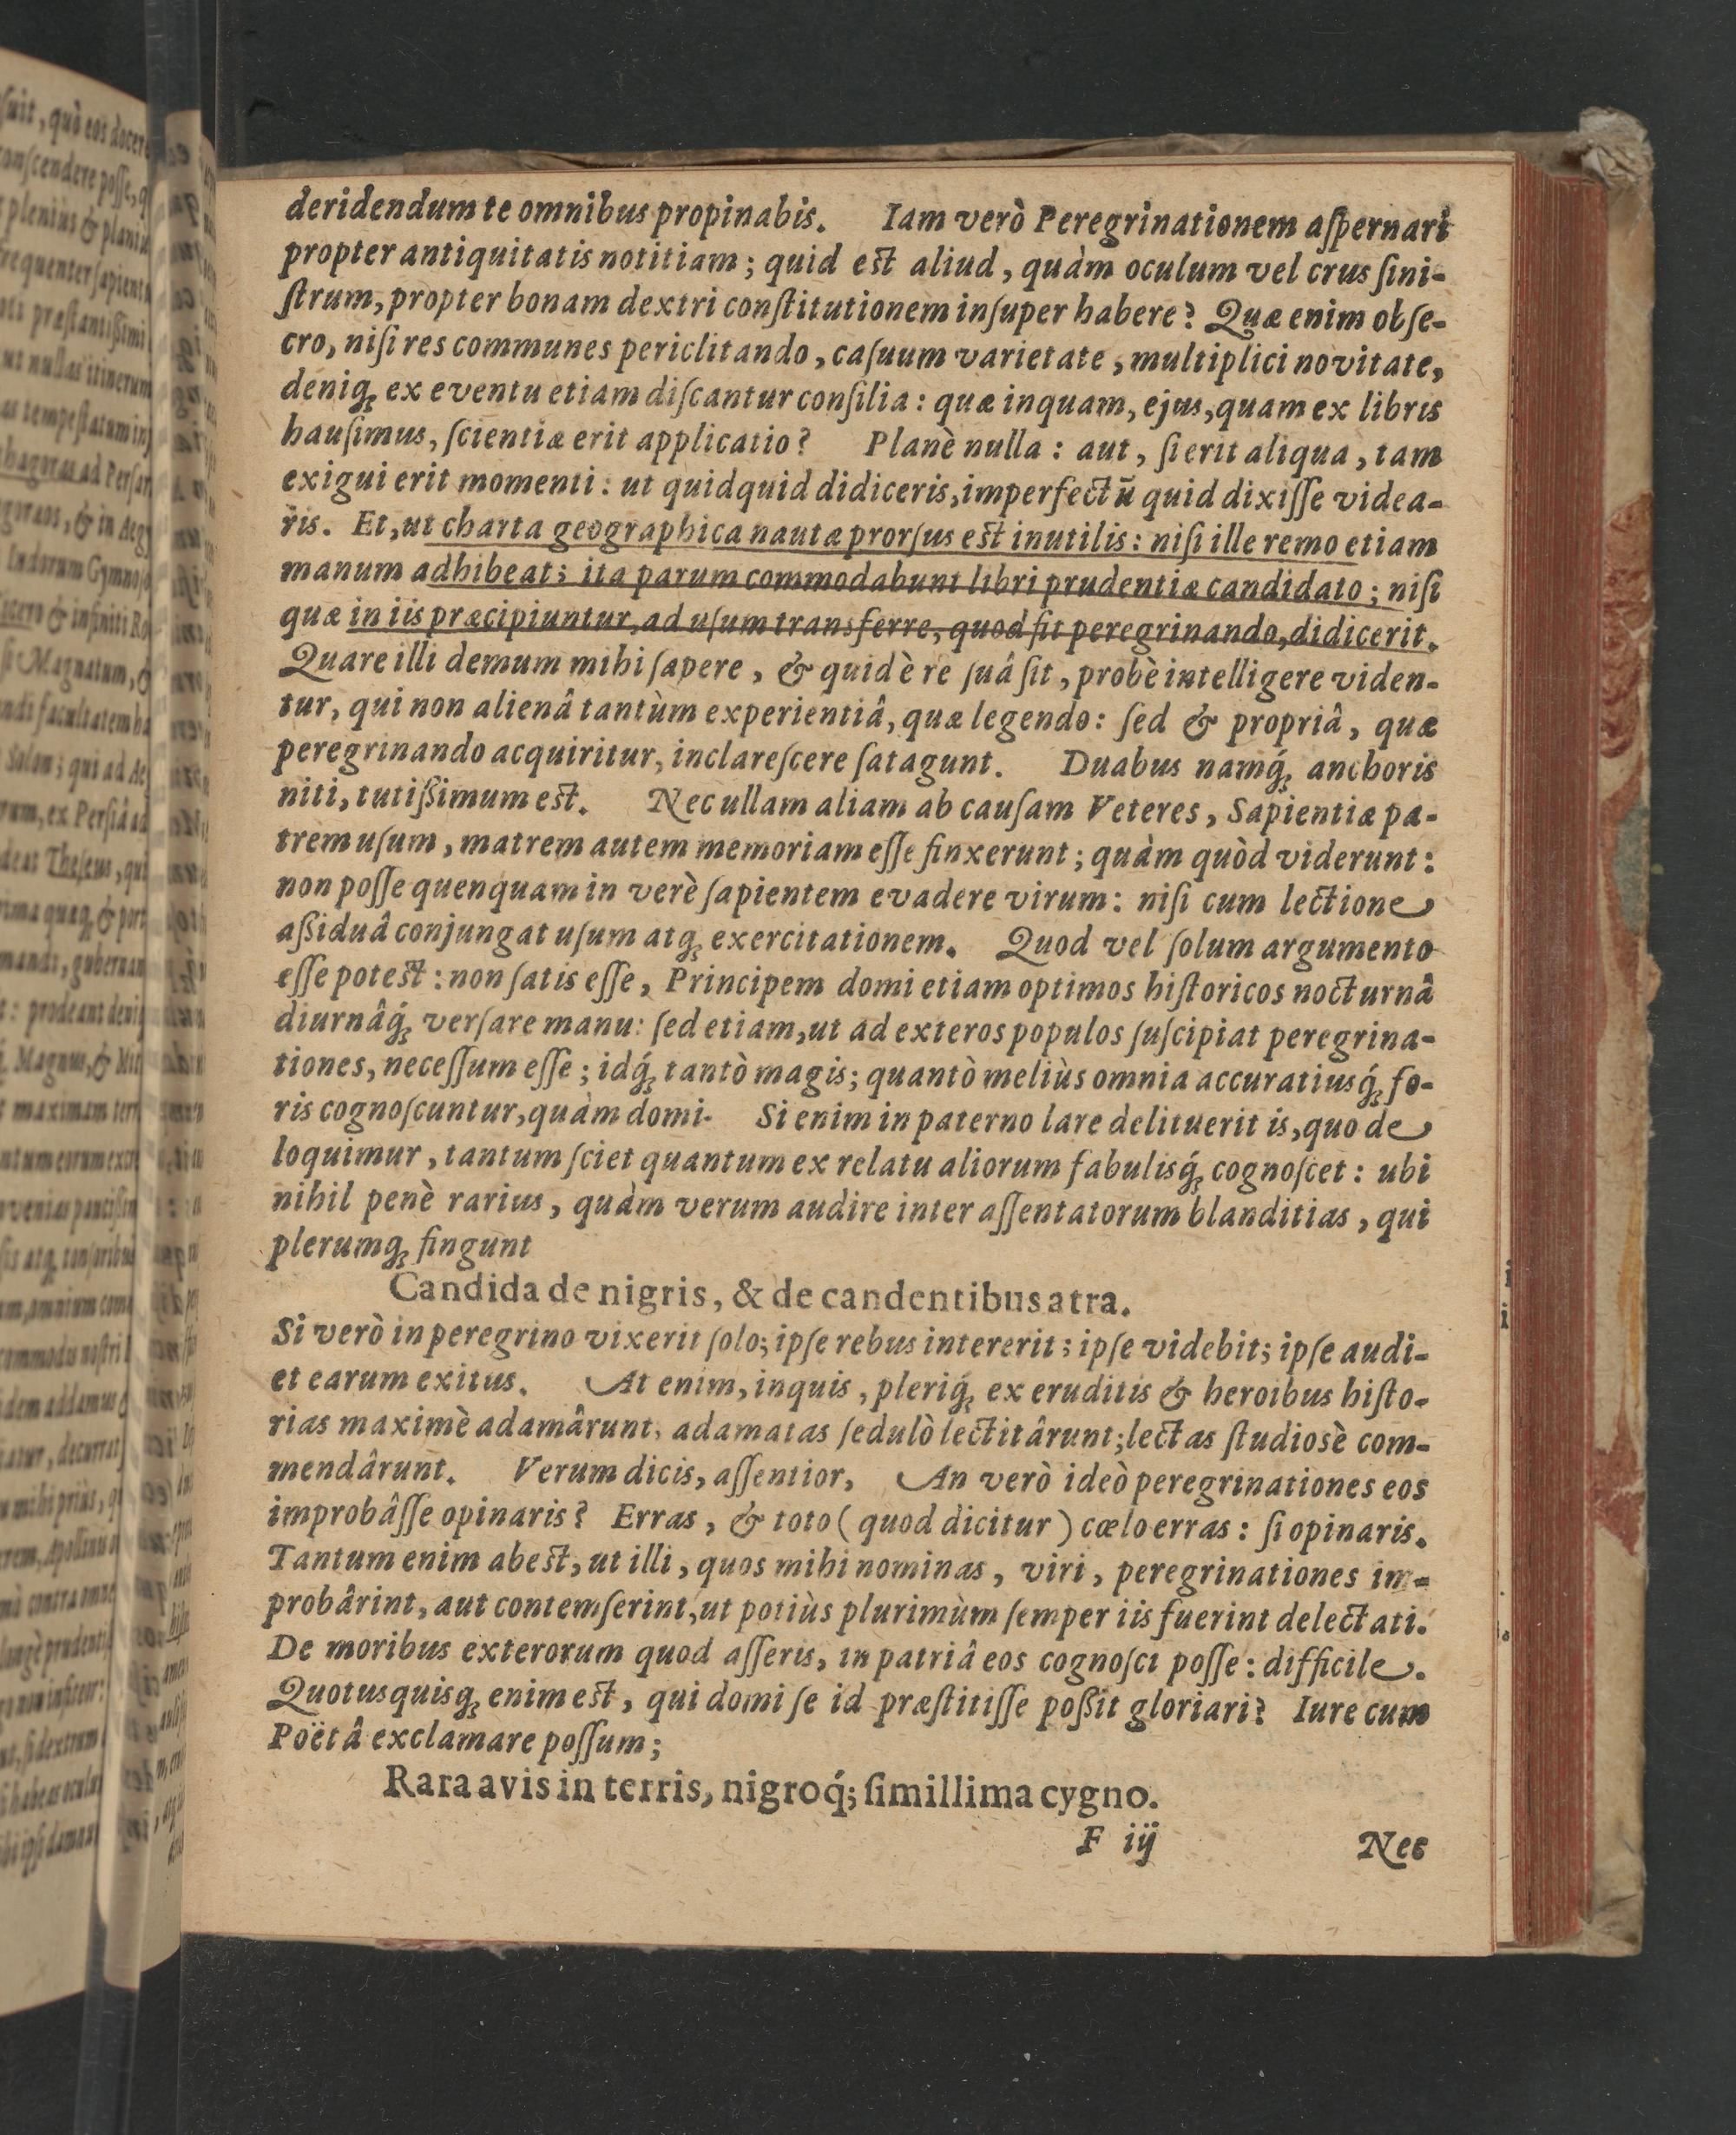 deridendum te omnibus propinabis. Iam verò Peregrinationem aſpernari
propter antiquitatis notitiam; quid est aliud, quàm oculum vel crus ſini-
ſtrum, propter bonam dextri conſtitutionem inſuper habere? Quæ enim obſe-
cro, niſi res communes periclitando, caſuum varietate, multiplici novitate,
deniq; ex eventu etiam diſcantur conſilia: quæ inquam, ejus, quam ex libris
hauſimus, ſcientiæ erit applicatio? Planè nulla: aut, ſi erit aliqua, tam
exigui erit momenti: ut quidquid didiceris, imperfectũ quid dixiſſe videa-
ris. Et, ut charta geographica nautæ prorſus est inutilis: niſi ille remo etiam
manum adhibeat; ita parum commodabunt libri prudentiæ candidato; niſi
quæ in iis præcipiuntur, ad uſum transferre, quod fit peregrinando, didicerit.
Quare illi demum mihi ſapere, & quid è re ſuâ ſit, probè intelligere viden-
tur, qui non alienâ tantùm experientiâ, quæ legendo: ſed & propriâ, quæ
peregrinando acquiritur, inclareſcere ſatagunt. Duabus namq́; anchoris
niti, tutißimum est. Nec ullam aliam ab cauſam Veteres, Sapientiæ pa-
trem uſum, matrem autem memoriam eſſe finxerunt; quàm quòd viderunt:
non poſſe quenquam in verè ſapientem evadere virum: niſi cum lectione
aßiduâ conjungat uſum atq; exercitationem. Quod vel ſolum argumento
eſſe potest: non ſatis eſſe, Principem domi etiam optimos hiſtoricos nocturnâ
diurnâq́; verſare manu: ſed etiam, ut ad exteros populos ſuſcipiat peregrina-
tiones, neceſſum eſſe; idq́; tantò magis; quantò meliùs omnia accuratiusq́; fo-
ris cognoſcuntur, quàm domi. Si enim in paterno lare delituerit is, quo de
loquimur, tantum ſciet quantum ex relatu aliorum fabulisq́; cognoſcet: ubi
nihil penè rarius, quàm verum audire inter aſſentatorum blanditias, qui
plerumq; fingunt
Candida de nigris, & de candentibus atra.
Si verò in peregrino vixerit ſolo; ipſe rebus intererit; ipſe videbit; ipſe audi-
et earum exitus. At enim, inquis, pleriq́; ex eruditis & heroibus hiſto-
rias maximè adamârunt, adamatas ſedulò lectitârunt; lectas ſtudiosè com-
mendârunt. Verum dicis, aſſentior, An verò ideò peregrinationes eos
improbâſſe opinaris? Erras, & toto (quod dicitur) cœlo erras: ſi opinaris.
Tantum enim abest, ut illi, quos mihi nominas, viri, peregrinationes im-
probârint, aut contemſerint, ut potiùs plurimùm ſemper iis fuerint delectati.
De moribus exterorum quod aſſeris, in patriâ eos cognoſci poſſe: difficile.
Quotusquisq; enim est, qui domi ſe id præſtitiſſe poßit gloriari? Iure cum
Poëtâ exclamare poſſum;
Rara avis in terris, nigroq́; ſimillima cygno.
F iij Nec